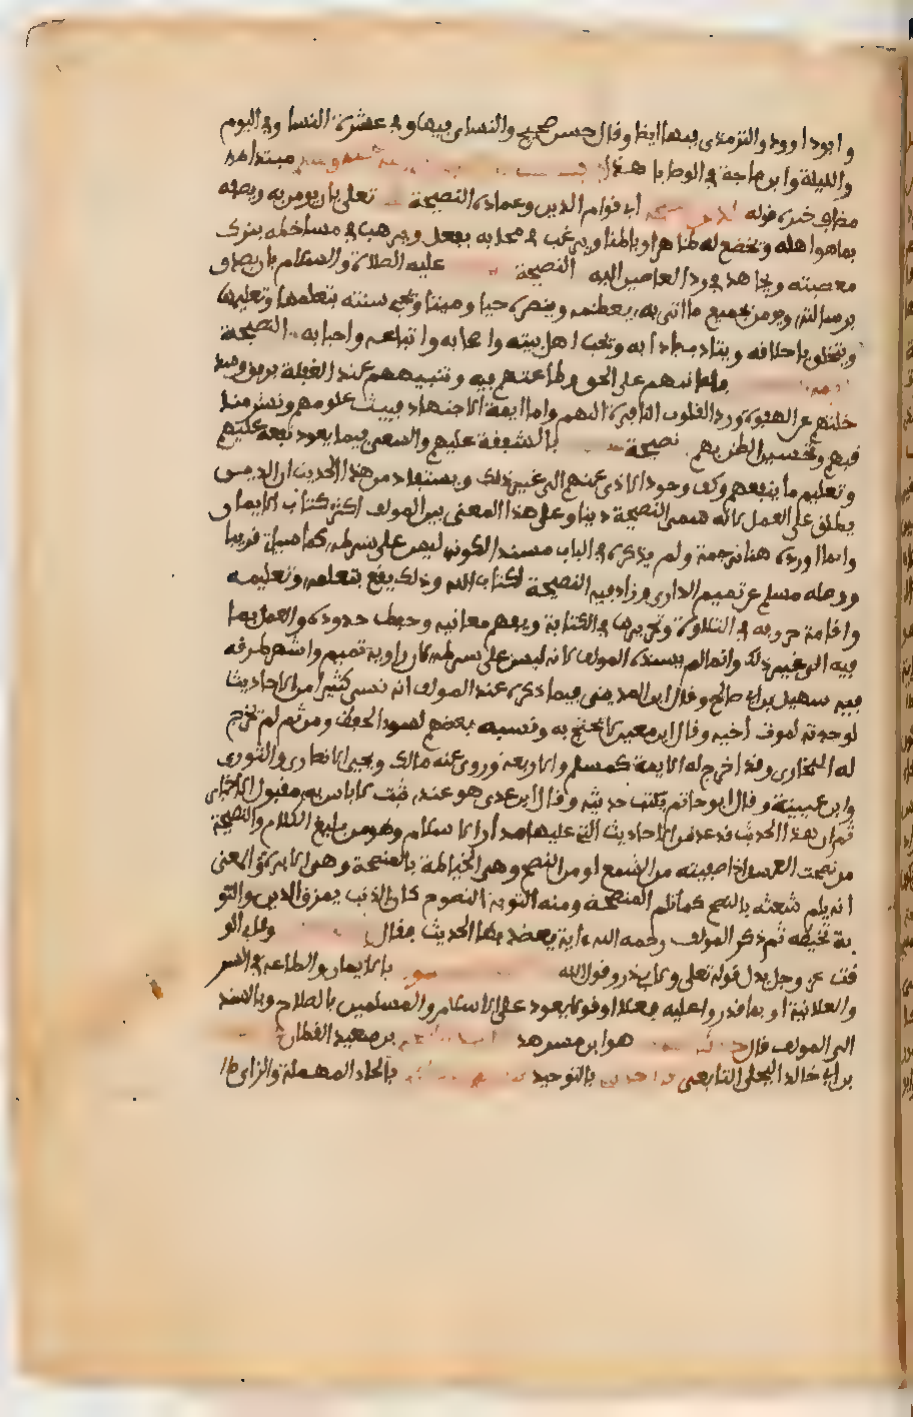 وابو داوود والترمذى فيها ايضا وقال حسن صحيح والنساى فيها وفى عشرة النسا وفى اليوم
والليلة وابن ماجة فى الوصايا هذا مبتدا
مضاف خبره قوله اى قوام الدين وعماده النصيحة تعلى بان يومن به ويصفه
بما هو اهله ويخضع له ظاهرا وباطنا ويرغب فى محابه بفعل ويرهب فى مساخطه بترك
معصيته ويجاهد فى رد العاصين اليه النصيحة عليه الصلاة والسلام بان يصدق
برسالته ويومن بجميع ما اتى به ويعظمه وينصره حيا وميتا ويحيى سنته بتعلمها وتعليمها
ويتخلق باخلاقه ويتادب بادابه ويحب اهل بيته واصحابه واتباعه واحبابه النصيحة
باعانتهم على الحق وطاعتهم فيه وتنبيههم عند الغفلة برفق وسد
خلتهم عن الهفوة ورد القلوب النافرة اليهم واما ايمة الاجتهاد فببث علومهم ونشر مناقبهم
وتحسين الظن بهم نصيحة بالشفقة عليهم والسعى فيما يعود نفعه عليهم
وتعليم ما ينفعهم وكف وجوه الاذى عنهم الى غير ذلك ويستفاد من هذا الحديث ان الدين
يطلق على العمل لانه سمى النصيحة دينا وعلى هذا المعنى بنى المولف اكثر كتاب الايمان
وانما اورده هنا ترجمة ولم يذكره فى الباب مسندا لكونه ليس على شرطه كما سياتى قريبا
ووصله مسلم عن تميم الدارى وزاد فيه النصيحة لكتاب الله وذلك يقع بتعلمه وتعليمه
واقامة حروفه فى التلاوة وتحريرها فى الكتابة ويفهم معانيه وحفظ حدوده والعمل بما
فيه الى غير ذلك وانما لم يسنده المولف لانه ليس على شرطه لان راويه تميم واشهر طرقه
فيه سهيل بن ابى صالح وقال ابن المدينى فيما ذكره عند المولف انه نسى كثيرا من الاحاديث
لوجدته لموت اخيه وقال ابن معين لا يحتج به ونسبه بعضهم لسوء الحفظ ومن ثم لم يخرج
له البخارى وقد اخرج له الايمة كمسلم والاربعة وروى عنه مالك ويحيى الانصارى والثورى
وابن عيينة وقال ابو حاتم يكتب حديثه وقال ابن عدى هو عندى ثبت لا باس به مقبول الاخبار
ثم ان هذا الحديث قد عد من الاحاديث التى عليها مدار الاسلام وهو من بليغ الكلام والنصيحة
من نصحت العسل اذا صفيته من الشمع او من النصح وهى الخياطة بالمنصحة وهى الابرة والمعنى
انه يلم شعثه بالنصح كما تلم المنصحة ومنه التوبة النصوح كان الذنب يمزق الدين والتو
بة تخيطه ثم ذكر المولف رحمه الله اية يعضد بها الحديث فقال
عز وجل بدل قوله تعلى ولابى ذر وقول الله بالايمان والطاعة فى السر
والعلانية او بما قدروا عليه فعلا او قولا يعود على الاسلام والمسلمين بالصلاح وبالسند
الى المولف قال هو ابن مسرهد بن سعيد القطان
بن ابى خالد البجلى التابعى بالتوحيد بالحاء المهملة والزاى